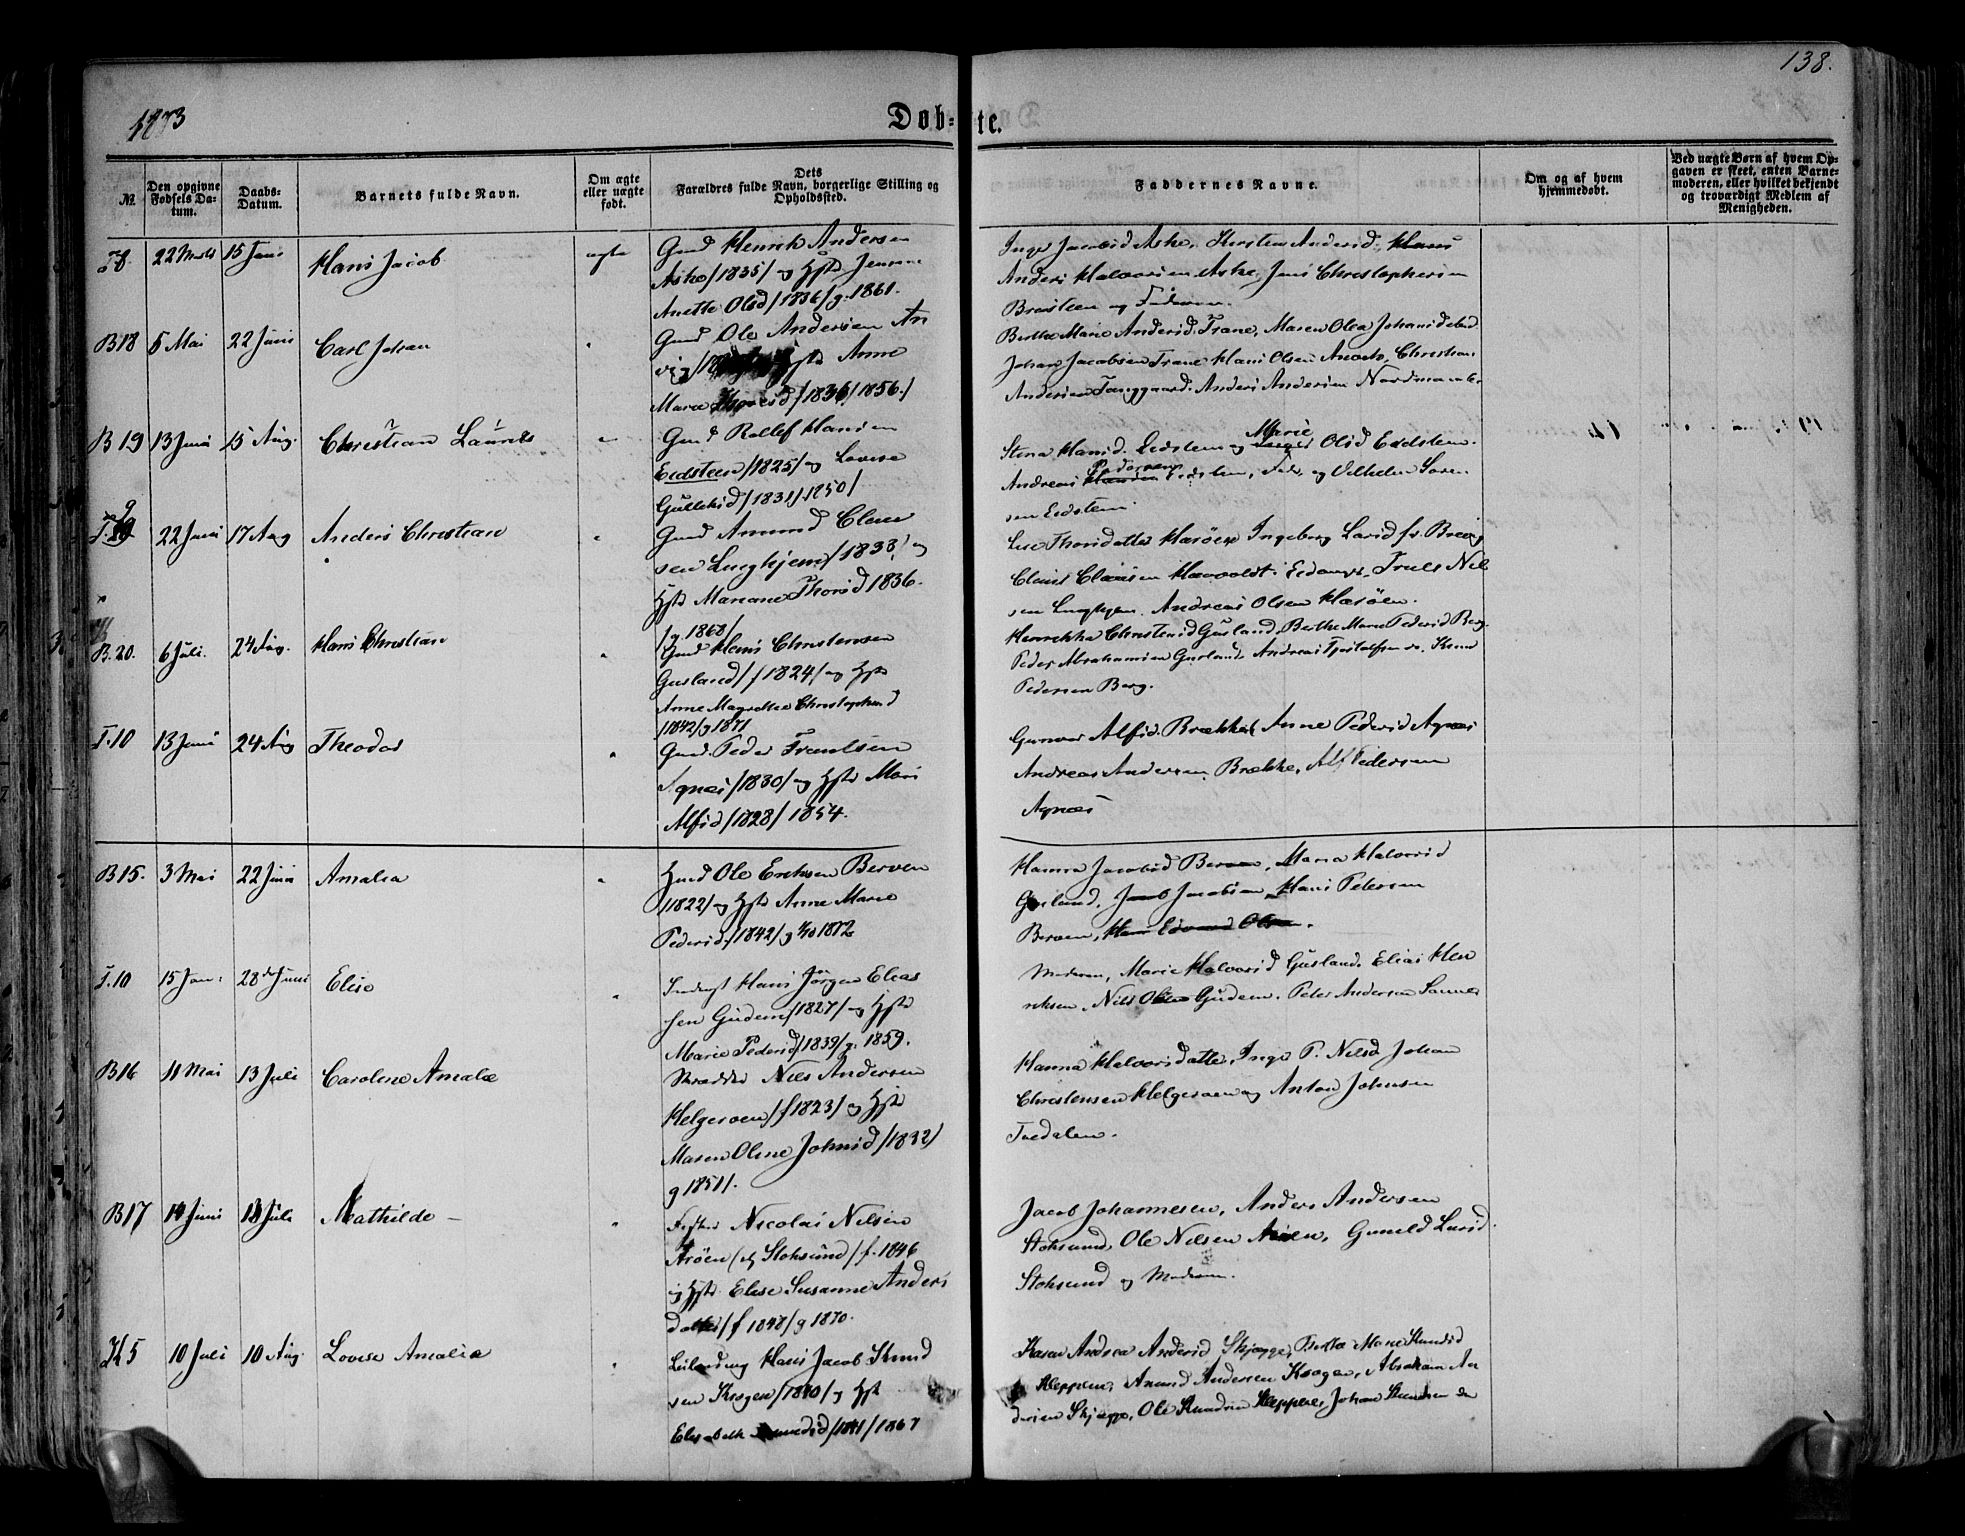 138.
1873
Døb-
te.
№.
Den opgivne Fødsels Datum.
Daabs-Datum.
Barnets fulde Navn.
Om ægte eller uægte født.
Dets Forældres fulde Navn, borgerlige Stilling og Opholdssted.
Faddernes Navne.
Om og af hvem hjemmedøbt.
Ved uægte Børn af hvem Opgaven er skeet, enten Barnemoderen, eller hvilket bekjendt og troværdigt Medlem af Menigheden.
8. 22 Marts 15 Juni Hans Jacob ægte
Gmd Henrik Andersen
Aske /1835/ og Hst Jensine
Anette Olsd /1836/ g. 1861.
Inger Jacobsd Aske, Kirsten Andersd. Hans
Anders Halvorsen Aske, Jens Christophersen
og Faderen.
B18 5 Mai 22 Juni Carl Johan "
Gmd Ole Andersen An
vig Hst Anne
Marie /1836/ 1856./
Berthe Marie Andersd. Trane, Maren Olea Johansd
Johan Jacobsen Trane Hans Olsen, Christian
Andersen Tanggaard. Anders Andersen
B 19 13 Juni 15 Aug. Christian Laurits "
Gmd Rollef Hansen
Eedsteen /1825/ og Lovise
Gulliksd /1831/ 1850/
Stina Hansd. Eedsteen og Marie Olsd Eedsteen.
Andreas Pedersen Eedsteen, Fad. og Vilhelm Søren
sen Eedsteen
T. 9 22 Juni 17 Aug Anders Christian "
Gmd Amund Clau
sen Lunghjem /1838/ og
Hst Mariane Thorsd 1836.
/g. 1868/
Lise Thorsdatter Harøen Ingeborg Larsd fr. Brevig
Claus Clausen Hauvoldt i Eedanger, Truls Niel
sen Lunghjem, Andreas Olsen Harøen.
B. 20. 6 Juli. 24 Aug. Hans Christian "
Gmd Hans Christensen
Gusland /f 1824/ og Hst
Anne Magrethe Christophersd
/1842/ g 1871
Henrikka Christensd Gusland, Berthe Marie Pedersd Berg.
Peder Abrahamsen Gusland, Andreas
Pedersen Berg.
T. 10 13 Juni 24 Aug Theodor "
Gmd. Peder Frantsen
Agnæs /1830/ og Hst Mari
Alfsd /1828/ 1854.
Gunvor Alfsd. Brække, Anne Pedersd Agnæs
Andreas Andersen Brække, Alf Pedersen
Agnæs
B15. 3 Mai 22 Juni Amalia "
Hmd Ole Eriksen Berven
/1822/ og Hst Anne Marie
Pedersd. /1842/ g 1872
Hanna Jacobsd Berven, Maria Halvorsd
Gusland. Jacob Jacobsen, Hans Petersen
Berven, Hans Edvard Olsen.
T. 10 15 Jan: 28de Juni Elise "
Inderst Hans Jørgen Elias
sen Gudem /1827/ og Hst
Marie Pedersd /1839/ g. 1859.
Moderen, Marie Halvorsd Gusland. Elias Hen
riksen, Nils Olsen Gudem. Peter Andersen
B16 11 Mai 13 Juli Caroline Amalie
Skrædder Nils Andersen
Helgeroen /f 1823/ og Hst
Maren Oline Johnsd /1832/
g 1851/.
Hanna Halvorsdatter, Inger P. Nilsd Johan
Christensen Helgeroen og Anton Johnsen
Tvedalen.
B17 14 Juni 13 Juli Mathilde — "
Fisker Nicolai Nilsen
Arøen (og Stoksund) /f. 1846
og Hst. Elise Susanne Anders
datter /f 1848/ g 1870.
Jacob Johannesen, Anders Andersen
Stoksund, Ole Nilsen Arøen, Gunild Larsd.
Stoksund og Moderen.
H 5 10 Juli 10 Aug. Lovise Amalie "
Leilending Hans Jacob Knud
sen Krogen /1840/ og Hst
Elisabeth /1841/ 1867
Karen Andrea Andersd Skjægge, Berta Marie Knudsd
Kleppen, Amund Andersen Krogen, Abraham An
dersen Skjægge, Ole Knudsen Kleppen, Johan Knudsen